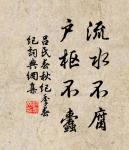 流水不腐
户枢不蠹
吕氏春秋纪季春
纪词典网集